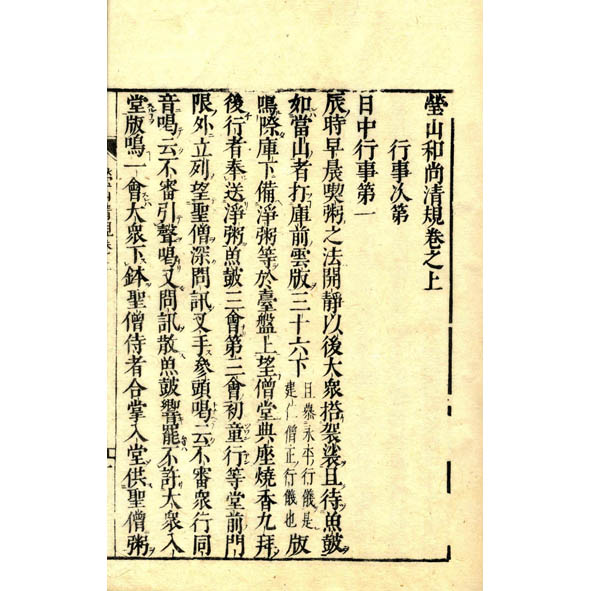 瑩山和尚清規卷之上
行事次第
日中行事第一
辰時早晨喫粥之法開靜以後大衆搭袈裟且待魚皷
如當山者打庫前雲版三十六下且慕永平行儀是建仁僧正行儀也版
鳴際庫下備淨粥等於臺盤上望僧堂典座燒香九拜
後行者奉送淨粥魚皷三會第二會初童行等堂前門
限外立列望聖僧深問訊叉手參頭喝云不審衆行同
音喝云不審引聲喝又問訊散魚皷響罷不許大衆入
堂版鳴一會大衆下鉢聖僧侍者合掌入堂供聖僧粥